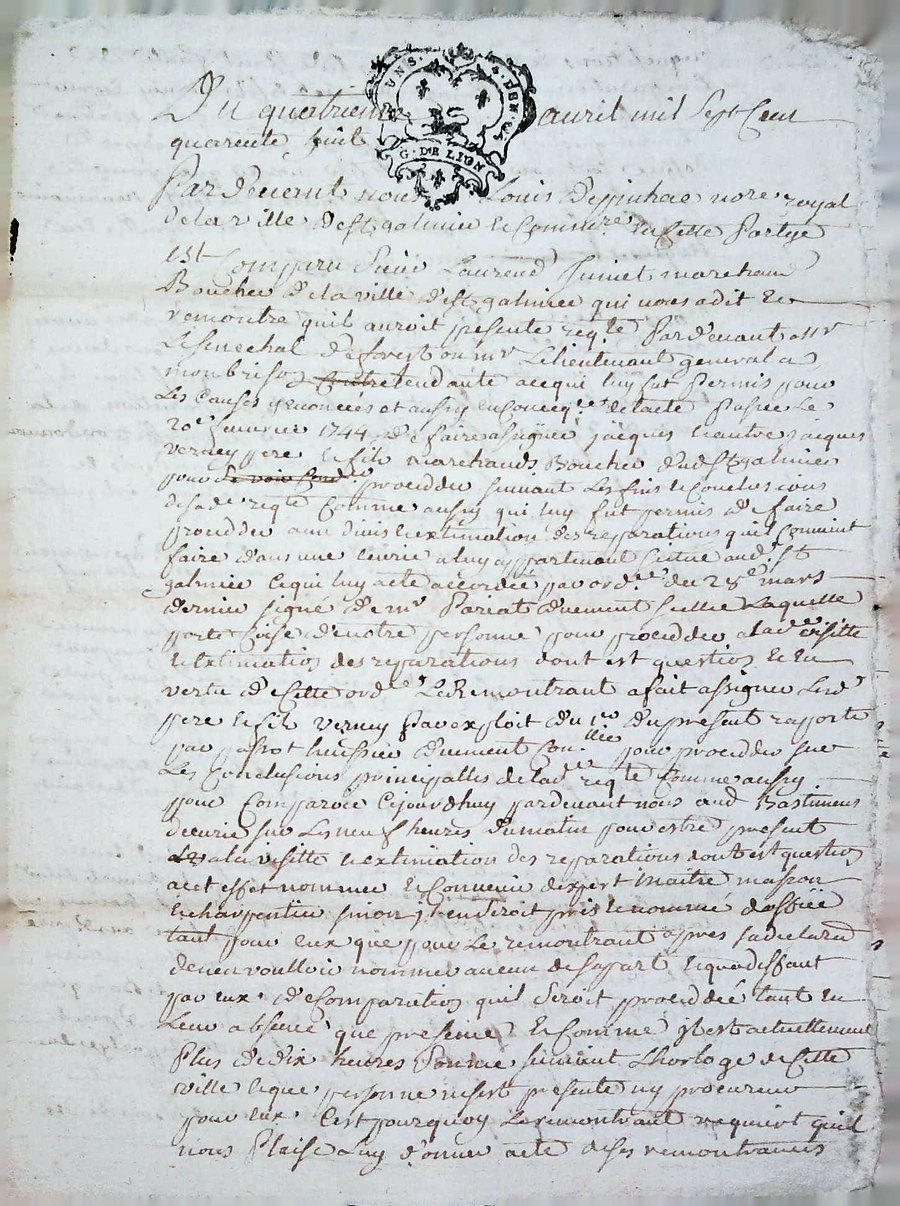 Du quatrieme avril mil sept Cent
quarente huit
UN S. 4. DEN. G. DE LION
Pardevent nous Louis Despinhac nore royal
de la ville de st galmier et Commre en cette Partye
Est Comparu Sieur Laurend Juinet marchand
Boucher de la ville de st galmier qui nous a dit et
remontre quil auroit presente reqte Pardevant mr
Le senechal de forest ou mr Le lieutenant general a
monbrison tendante a ce qui luy fut permis pour
Les Causes y enoncées et aussy en Conseqce de lacte Passée Le
20e fevrier 1744 de faire assigner jacques et autre jacques
verney pere et fils marchands Boucher dud st galmier
pour proceder suivant Les fins et Conclusions
de sade reqte Comme aussy qui luy fut permis de faire
proceder aux divis et extimation des reparations quil Convient
faire dans une ecurie a luy appartenant Cittue aud st
galmier Ce qui luy a ete accordée par ordce du 28e mars
dernier signé de mr Pariat duement sellée Laquelle
porte Choise de notre personne pour proceder a lade visitte
et extimation des reparations dont est question et en
vertu de Cette ordce Le Remontrant a fait assigner Lesd
pere et fils verney par exploit du 1er du present raporté
par huissier duement Conllée pour proceder sur
Les Conclusions principalles de lade reqte Comme aussy
pour Comparoir Cejourdhuy pardevant nous aud Bastiment
decurie sur Les neuf heures du matin pour estre present
a la visitte et extimation des reparations dont est question
a cet effet nommer et Convenir dexpert maitre masson
et charpentier sinon jl en seroit pris et nommé doffice
tant pour eux que pour Le remontrant apres sa declarõn
de nen voulloir nommer aucun de sa part et qua deffaut
par eux de Comparution quil seroit procedée tant en
Leur absence que presence et Comme jl est actuellement
Plus de dix heures sonnée suivant Lhorloge de Cette
ville et que personne ne sest presenté ny procureur
pour eux Cest pourquoy Le remontrant requiert quil
nous Plaise Luy donner acte de ses remontrances